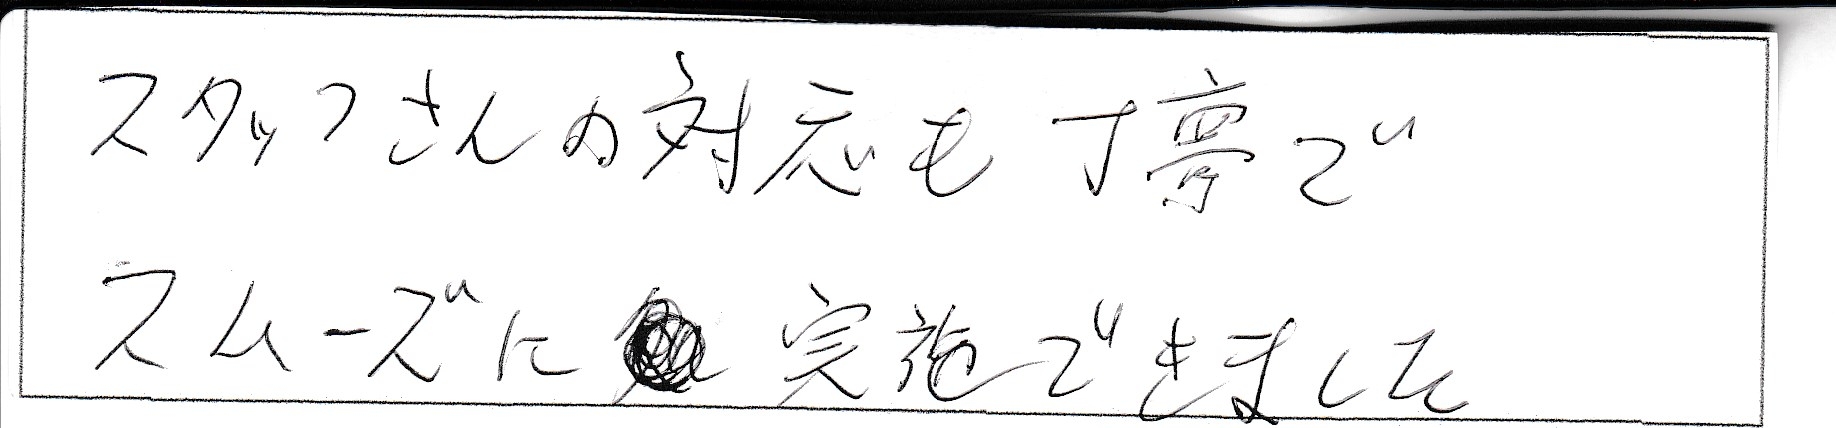 スタッフさんの対応も丁寧で
スムーズに実施できました